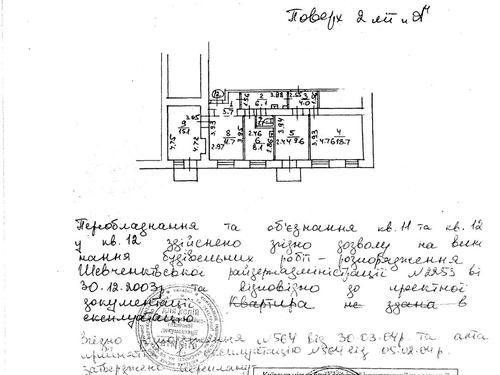 Поверх 2 літ "А"
12
1
5.7
1.96
2
6.1
3.88
2.55
3
4.0
1.56
9
15.1
3.05
4.75
4.72
3.93
8
11.7
3.95
2.97
7
2.46
6
8.1
1.86
3.94
5
2.44 9.6
3.93
4
4.76 18.7
Перобладнання та об'єзнання кв. 11 та кв. 12
у кв. 12 здійснено згідно дозволу на вик
нання будівельних робіт - розпорядження
Шевченківської райдержадміністрації №2253 ві
30.12.2003р та відповідно до проектної
документації Квартира не здана в
експлуатацію.
Згідно розпорядження №564 від 30.03.04р. та акта
прийняття в експлуатацію №564 від 05.02.04р.
затверджено
для копій
технічної
документації